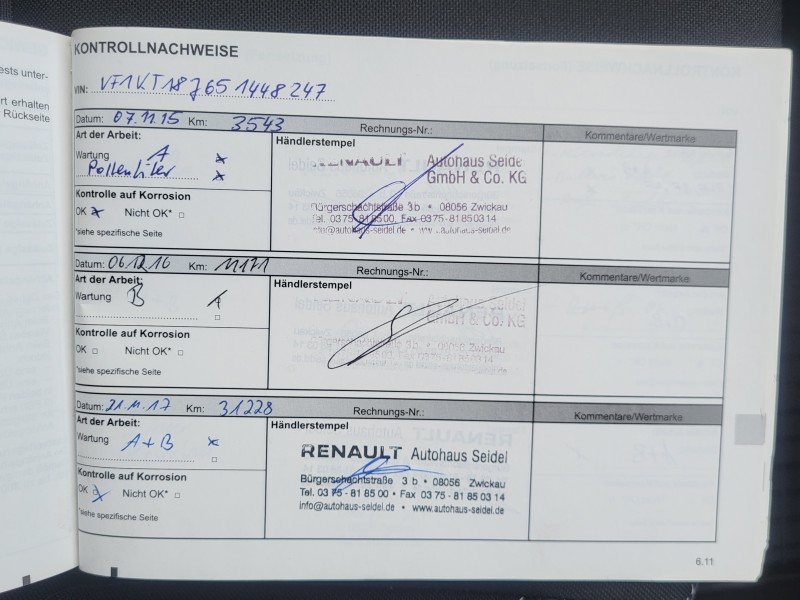 ests unter-
rt erhalten
Rückseite
KONTROLLNACHWEISE
VIN: VF1VT18J651448247
Datum: 07.11.15 Km: 3543 Rechnungs-Nr.: Kommentare/Wertmarke
Art der Arbeit: Händlerstempel
Wartung A x
Pollenfilter x
RENAULT Autohaus Seidel
GmbH & Co. KG
Bürgerschachtstraße 3b • 08056 Zwickau
Tel. 03 75 - 81 85 00, Fax 03 75 - 81 85 03 14
info@autohaus-seidel.de • www.autohaus-seidel.de
Kontrolle auf Korrosion
OK x Nicht OK* □
*siehe spezifische Seite
Datum: 06.12.16 Km: 11171 Rechnungs-Nr.: Kommentare/Wertmarke
Art der Arbeit: Händlerstempel
Wartung B
GmbH & Co. KG
Bürgerschachtstraße 3b • 08056 Zwickau
Kontrolle auf Korrosion
OK □ Nicht OK* □
*siehe spezifische Seite
Datum: 21.11.17 Km: 31228 Rechnungs-Nr.: Kommentare/Wertmarke
Art der Arbeit: Händlerstempel
Wartung A+B x
RENAULT Autohaus Seidel
Bürgerschachtstraße 3 b • 08056 Zwickau
Tel. 03 75 - 81 85 00 • Fax 03 75 - 81 85 03 14
info@autohaus-seidel.de • www.autohaus-seidel.de
Kontrolle auf Korrosion
OK x Nicht OK* □
*siehe spezifische Seite
6.11